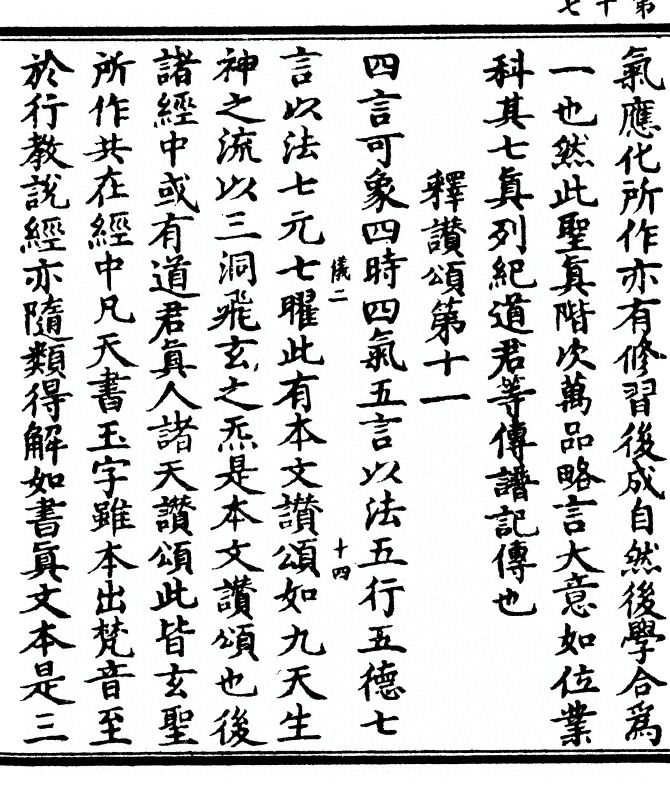 第十七
氣應化所作亦有修習後成自然後學合爲
一也然此聖眞階次萬品略言大意如位業
科其七眞列紀道君等傳譜記傳也
釋讚頌第十一
四言可象四時四氣五言以法五行五德七
儀二
十四
言以法七元七曜此有本文讚頌如九天生
神之流以三洞飛玄之炁是本文讚頌也後
諸經中或有道君眞人諸天讚頌此皆玄聖
所作共在經中凡天書玉字雖本出梵音至
於行教說經亦隨類得解如書眞文本是三